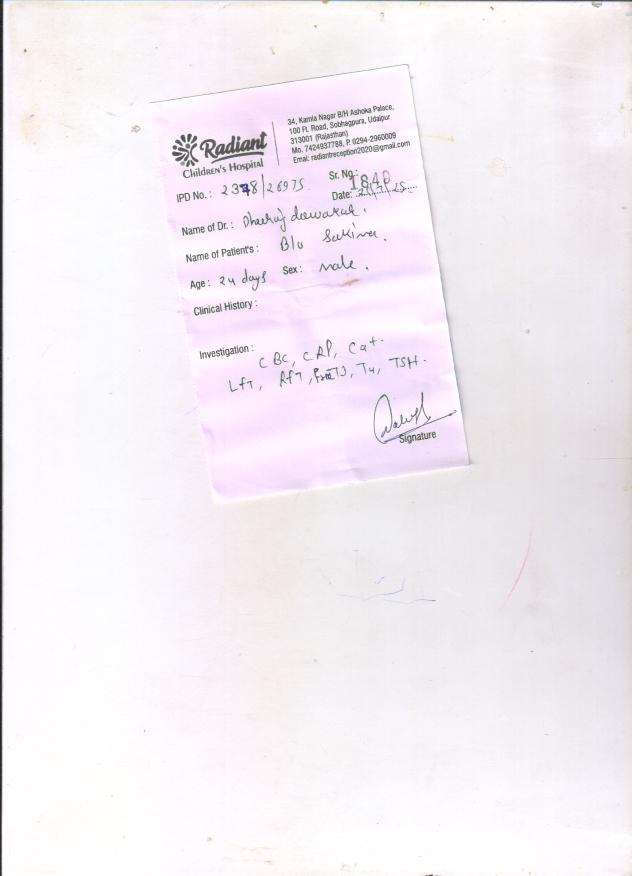 Radiant
Children's Hospital
34, Kamla Nagar B/H Ashoka Palace,
100 Ft. Road, Sobhagpura, Udaipur
313001 (Rajasthan)
Mo. 7424937788, P. 0294-2960009
Emai: radiantreception2020@gmail.com
IPD No.: 2378/26975
Sr. No.: 1840
Date:
Name of Dr.: Dheeraj deewakar.
Name of Patient's: B/o Sakina.
Age: 24 days Sex: male.
Clinical History:
Investigation:
CBC, CRP, Cat.
LFT, RFT, T3, T4, TSH.
Signature